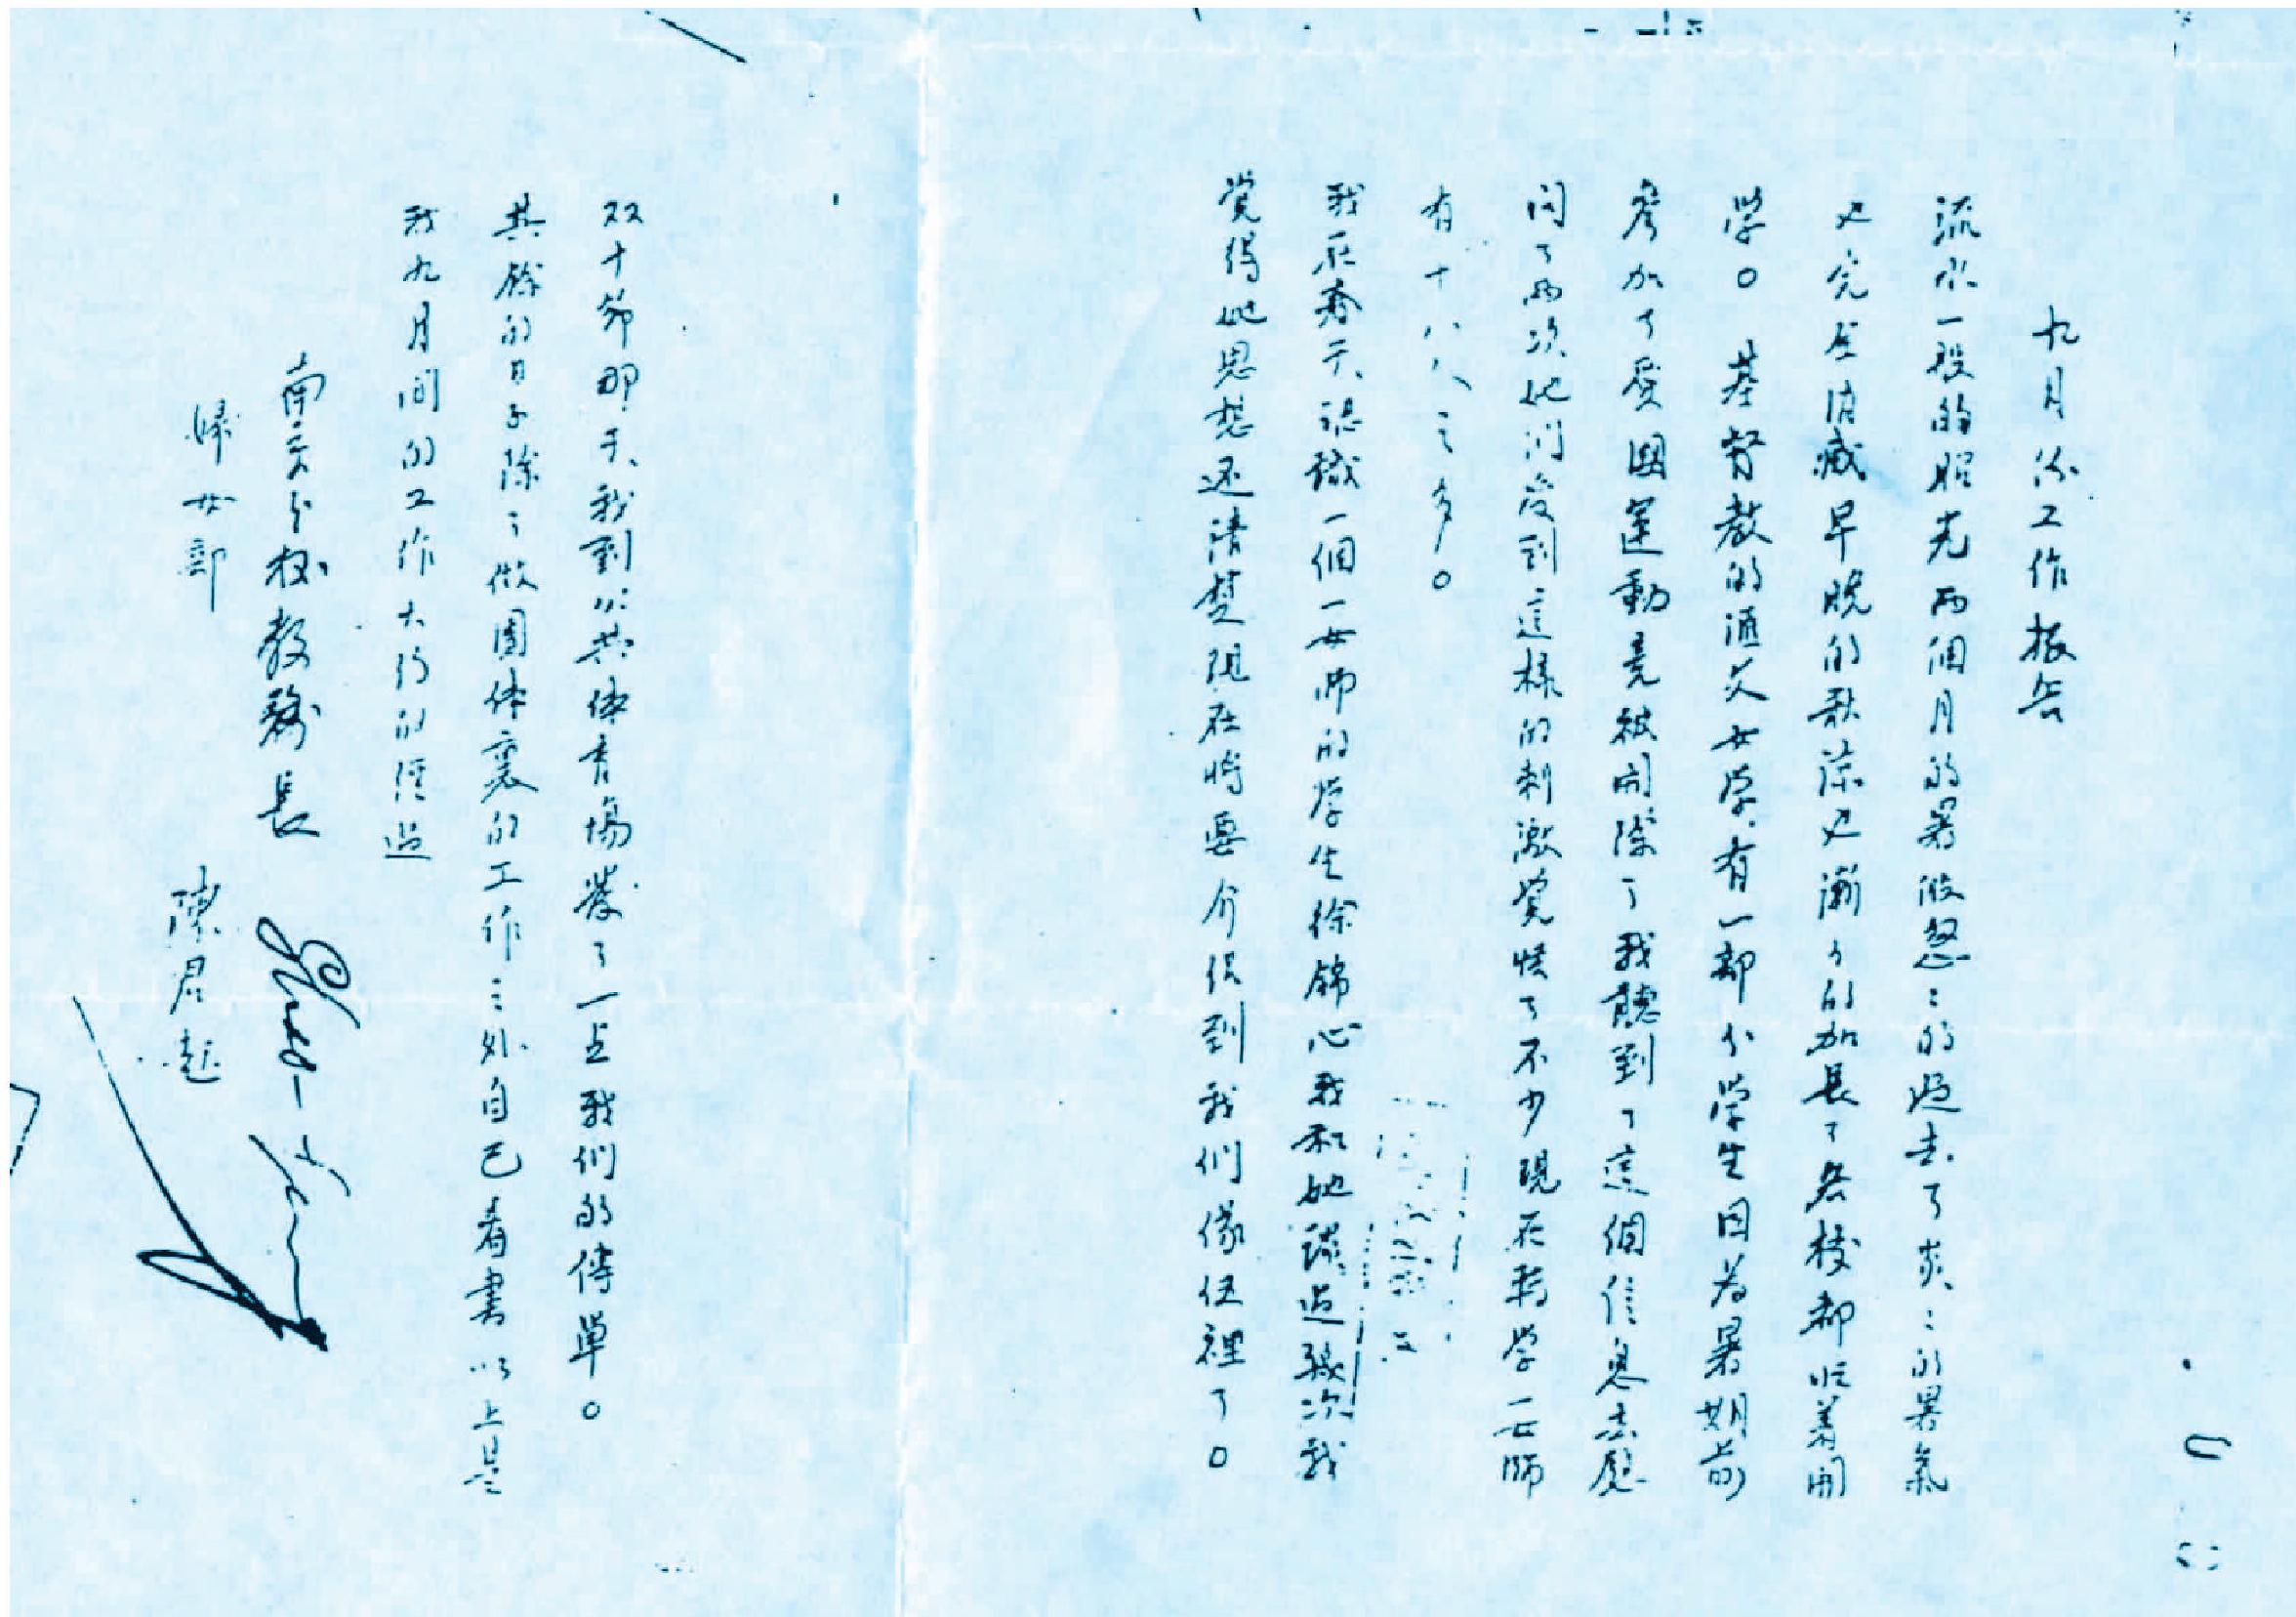 九月份工作報告
流水一般的昭光两個月的暑假忽々的過去了炎々的暑氣
也完全消滅早晚的秋涼也漸々的加長了各校都忙着開
学。基督教的滙文女学有一部分学生因為暑期前
参加了愛國運動竟被開除了我聽到了這個信息去慰
问了兩次她们受到這樣的刺激覚悟了不少現在轉学一女師
有十八人之多。
我在春天認識一個一女师的学生徐錦心我和她談过幾次我
覚得她思想还清楚現在將要介紹到我们隊伍裡了。
双十節那天我到公共体育場發了一点我们的傳單。
其餘的日子除了做團体裏的工作之外自己看書以上是
我九月間的工作大約的經过
南京分校教務長
婦女部
陳君起